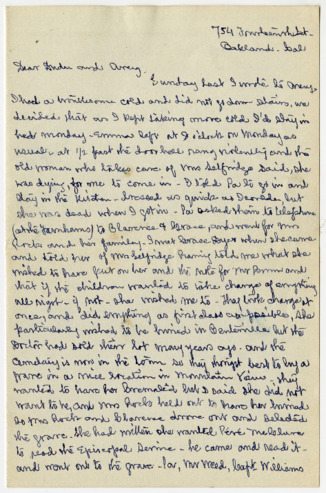 754 Fourteenth St-
Oakland- Cal
Dear Andu and Avery.
Sunday last I wrote to Avery,
I had a troublesome cold and did not go down stairs, we
decided that as I kept taking more cold I'd stay in
bed Monday- Emma left at 9 o'clock on Monday as
usual- at 1/2 past the door bell rang violently and the
old woman who takes care of Mrs Selfridge said, she
was dying, for me to come in- I told Pa to go in and
stay in the kitchen- dressed as quick as I could, but
she was dead when I got in. Pa asked them to telephone
(at the Farnhams) to Clarence & Grace, and went for Mrs
Rocks and her family. I met Grace Beye when she came
and told her of Mrs Selfridge having told me what she
wished to have put on her and the note for Mr Bunn and
that if the children wanted to take charge of everything
all right- if not- she wished me to- They took charge at
once, and did everything as first class as possible, she
particularly wished to be buried in Centerville but the
Doctor had sold their lot many years ago- and the
Cemetary is now in the town so they thought best to buy a
grave in a nice location in Mountain View- They
wanted to have her cremated but I said she did not
want to be, and Mrs Rocks held out to have her buried
so Mrs Rocks and Clarence drove out and selected
the grave. She had written she wanted Revd McClure
to read the Episcopal Service- he came and read it-
and went out to the grave- Pa, Mr Weed, Capt Williams